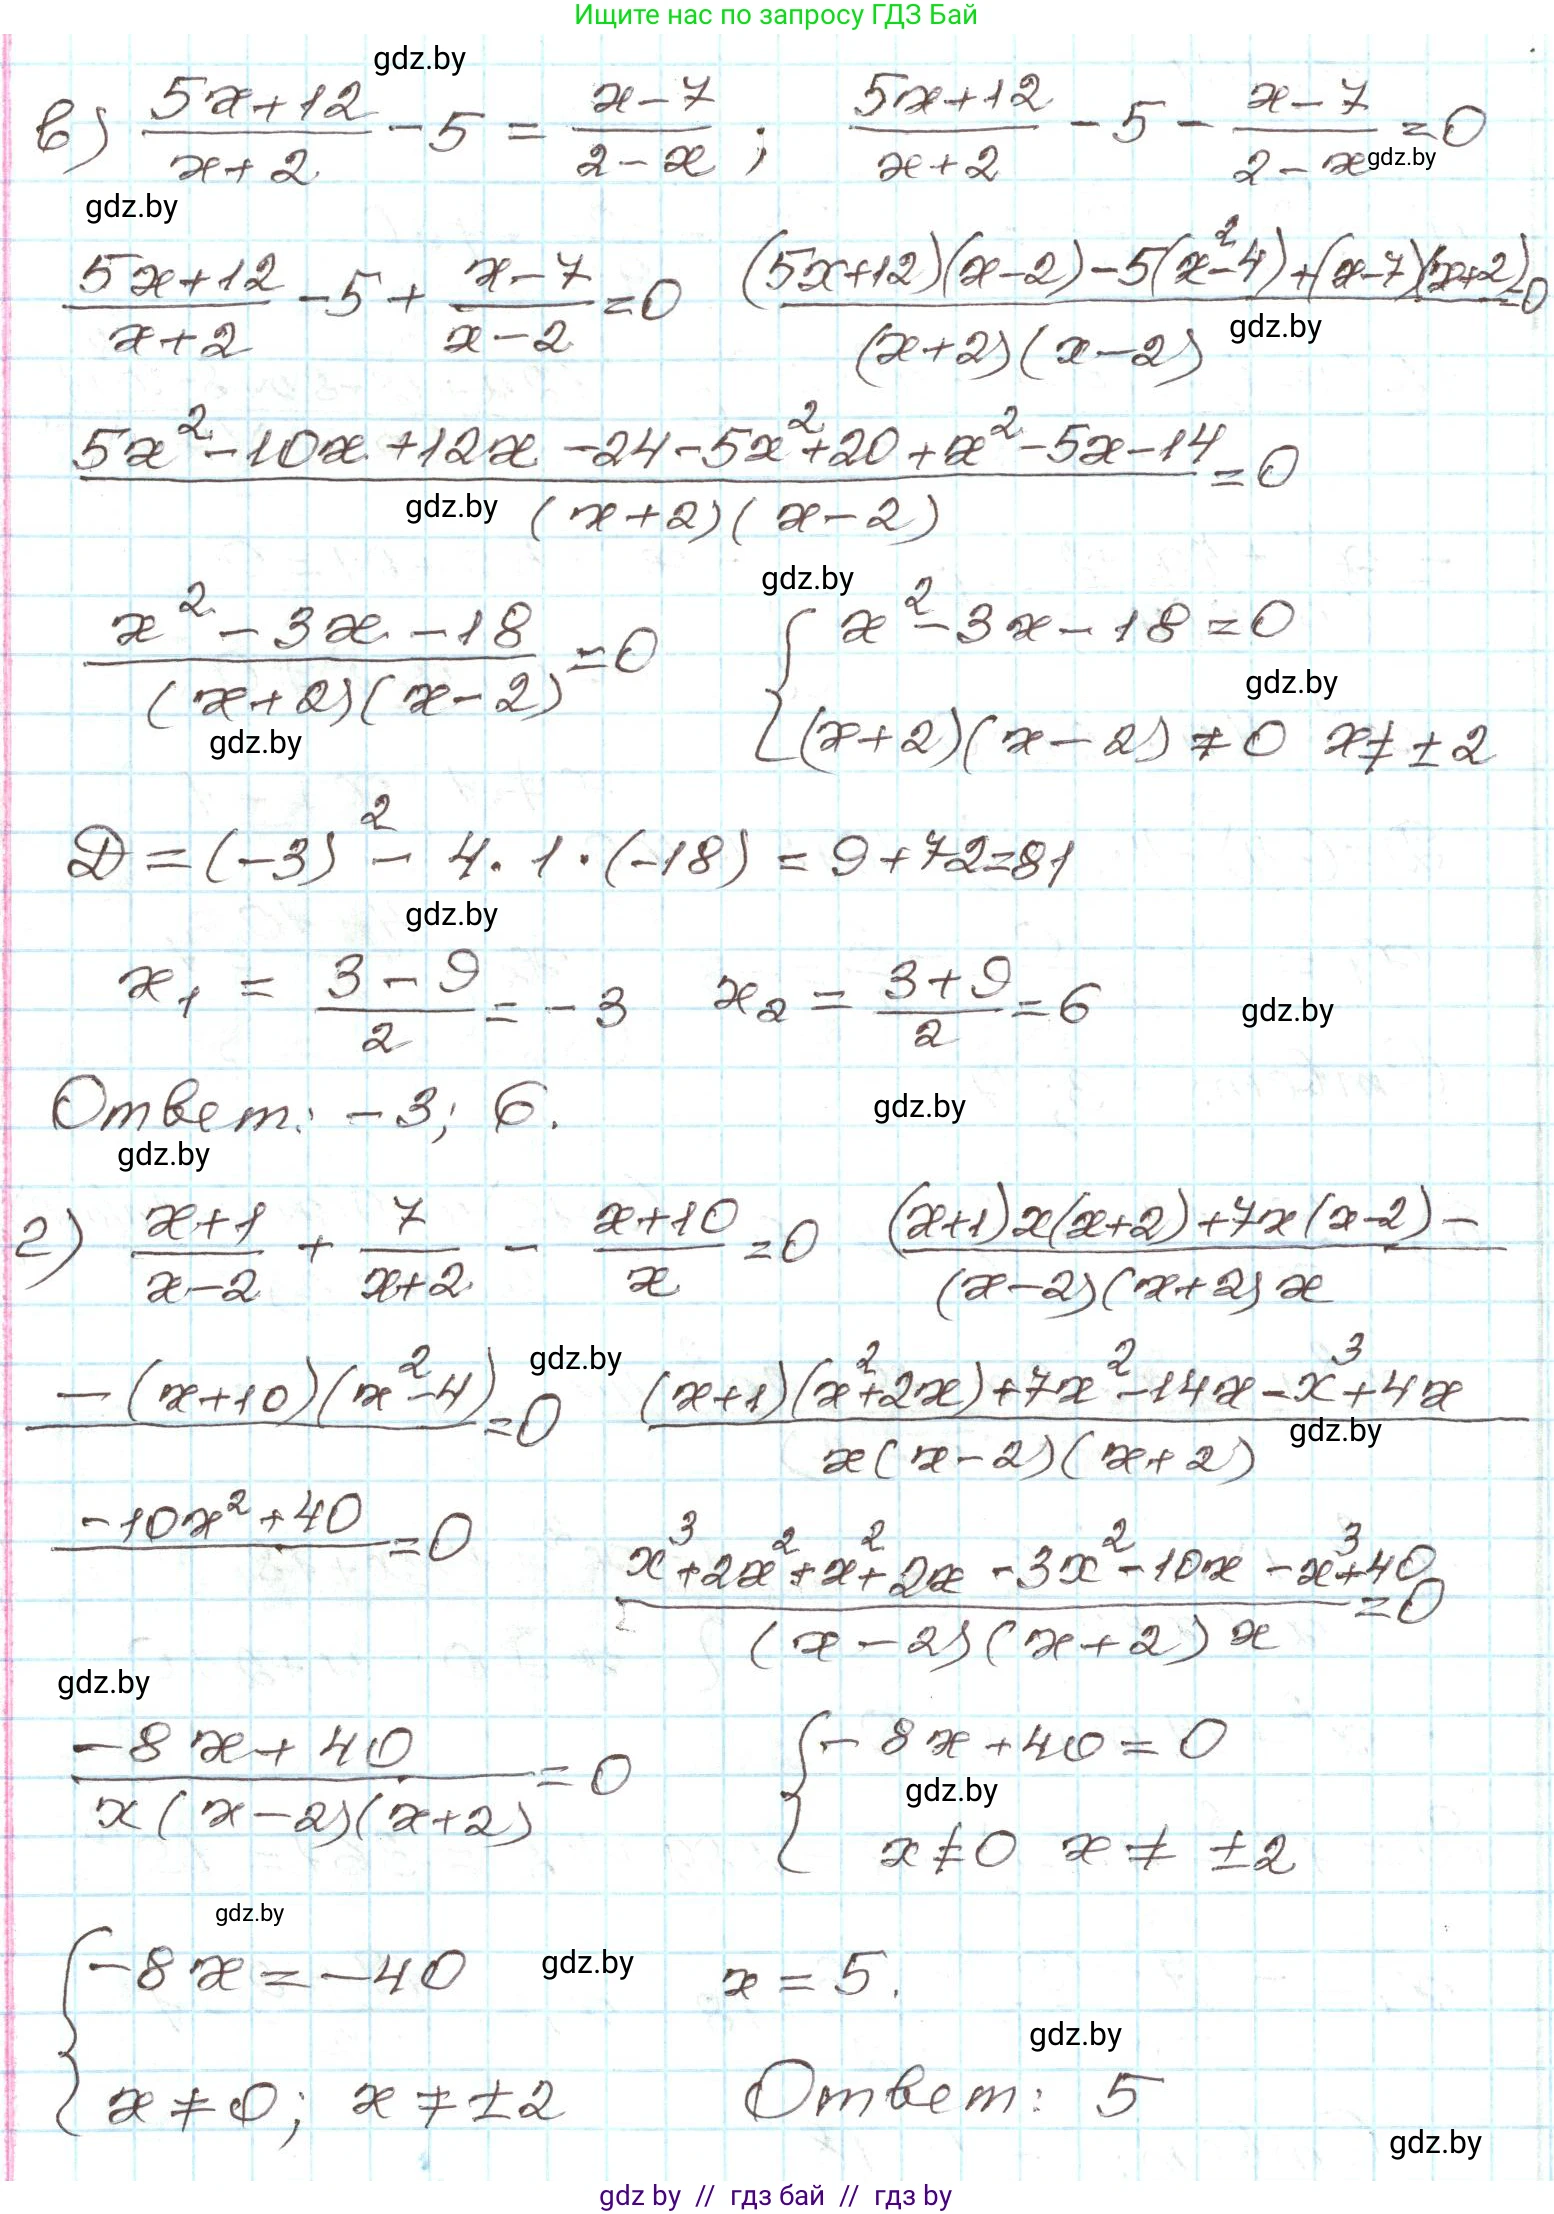 Ищите нас по запросу ГДЗ Бай
gdz.by
в) (5x+12)/(x+2) - 5 = (x-7)/(2-x) ; (5x+12)/(x+2) - 5 - (x-7)/(2-x) = 0
gdz.by
gdz.by
(5x+12)/(x+2) - 5 + (x-7)/(x-2) = 0 ((5x+12)(x-2) - 5(x²-4) + (x-7)(x+2))/((x+2)(x-2)) = 0
gdz.by
(5x² - 10x + 12x - 24 - 5x² + 20 + x² - 5x - 14)/((x+2)(x-2)) = 0
gdz.by
gdz.by
(x² - 3x - 18)/((x+2)(x-2)) = 0 { x² - 3x - 18 = 0
gdz.by
(x+2)(x-2) ≠ 0 x ≠ ±2
gdz.by
D = (-3)² - 4·1·(-18) = 9+72=81
gdz.by
x₁ = (3-9)/2 = -3 x₂ = (3+9)/2 = 6
gdz.by
Ответ: -3; 6.
gdz.by
gdz.by
г) (x+1)/(x-2) + 7/(x+2) - (x+10)/x = 0 ((x+1)x(x+2) + 7x(x-2) -)/((x-2)(x+2)x)
gdz.by
-(x+10)(x²-4) = 0 ((x+1)(x²+2x) + 7x² - 14x - x³ + 4x)/(x(x-2)(x+2))
gdz.by
-10x² + 40 = 0 (x³ + 2x² + x² + 2x - 3x² - 10x - x³ + 40)/((x-2)(x+2)x) = 0
gdz.by
(-8x + 40)/(x(x-2)(x+2)) = 0 { -8x + 40 = 0
gdz.by
x ≠ 0 x ≠ ±2
gdz.by
{ -8x = -40 x = 5.
gdz.by
gdz.by
x ≠ 0; x ≠ ±2 Ответ: 5
gdz.by
gdz by // гдз бай // гдз by